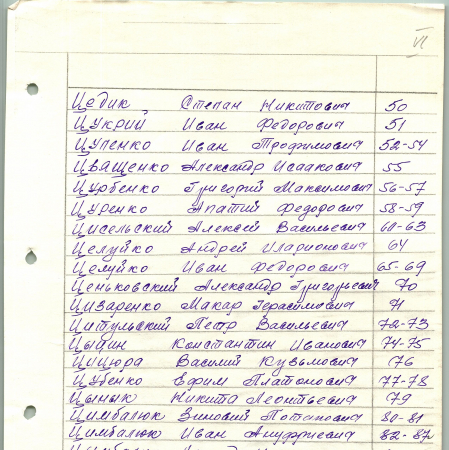 VI
Цедик Степан Никитович 50
Цукрий Иван Федорович 51
Цупенко Иван Трофимович 52-54
Цващенко Александр Исаакович 55
Цурбенко Григорий Максимович 56-57
Цуренко Ипатий Федорович 58-59
Цисельский Алексей Васильевич 60-63
Целуйко Андрей Иларионович 64
Целуйко Иван Федорович 65-69
Ценьковский Александр Григорьевич 70
Цизаренко Макар Герасимович 71
Цитульский Петр Васильевич 72-73
Цыдин Константин Иванович 74-75
Цицюра Василий Кузьмович 76
Цубенко Ефрим Платонович 77-78
Цынык Никита Леонтьевич 79
Цимбалюк Зиновий Потапович 80-81
Цимбалюк Иван 82-87